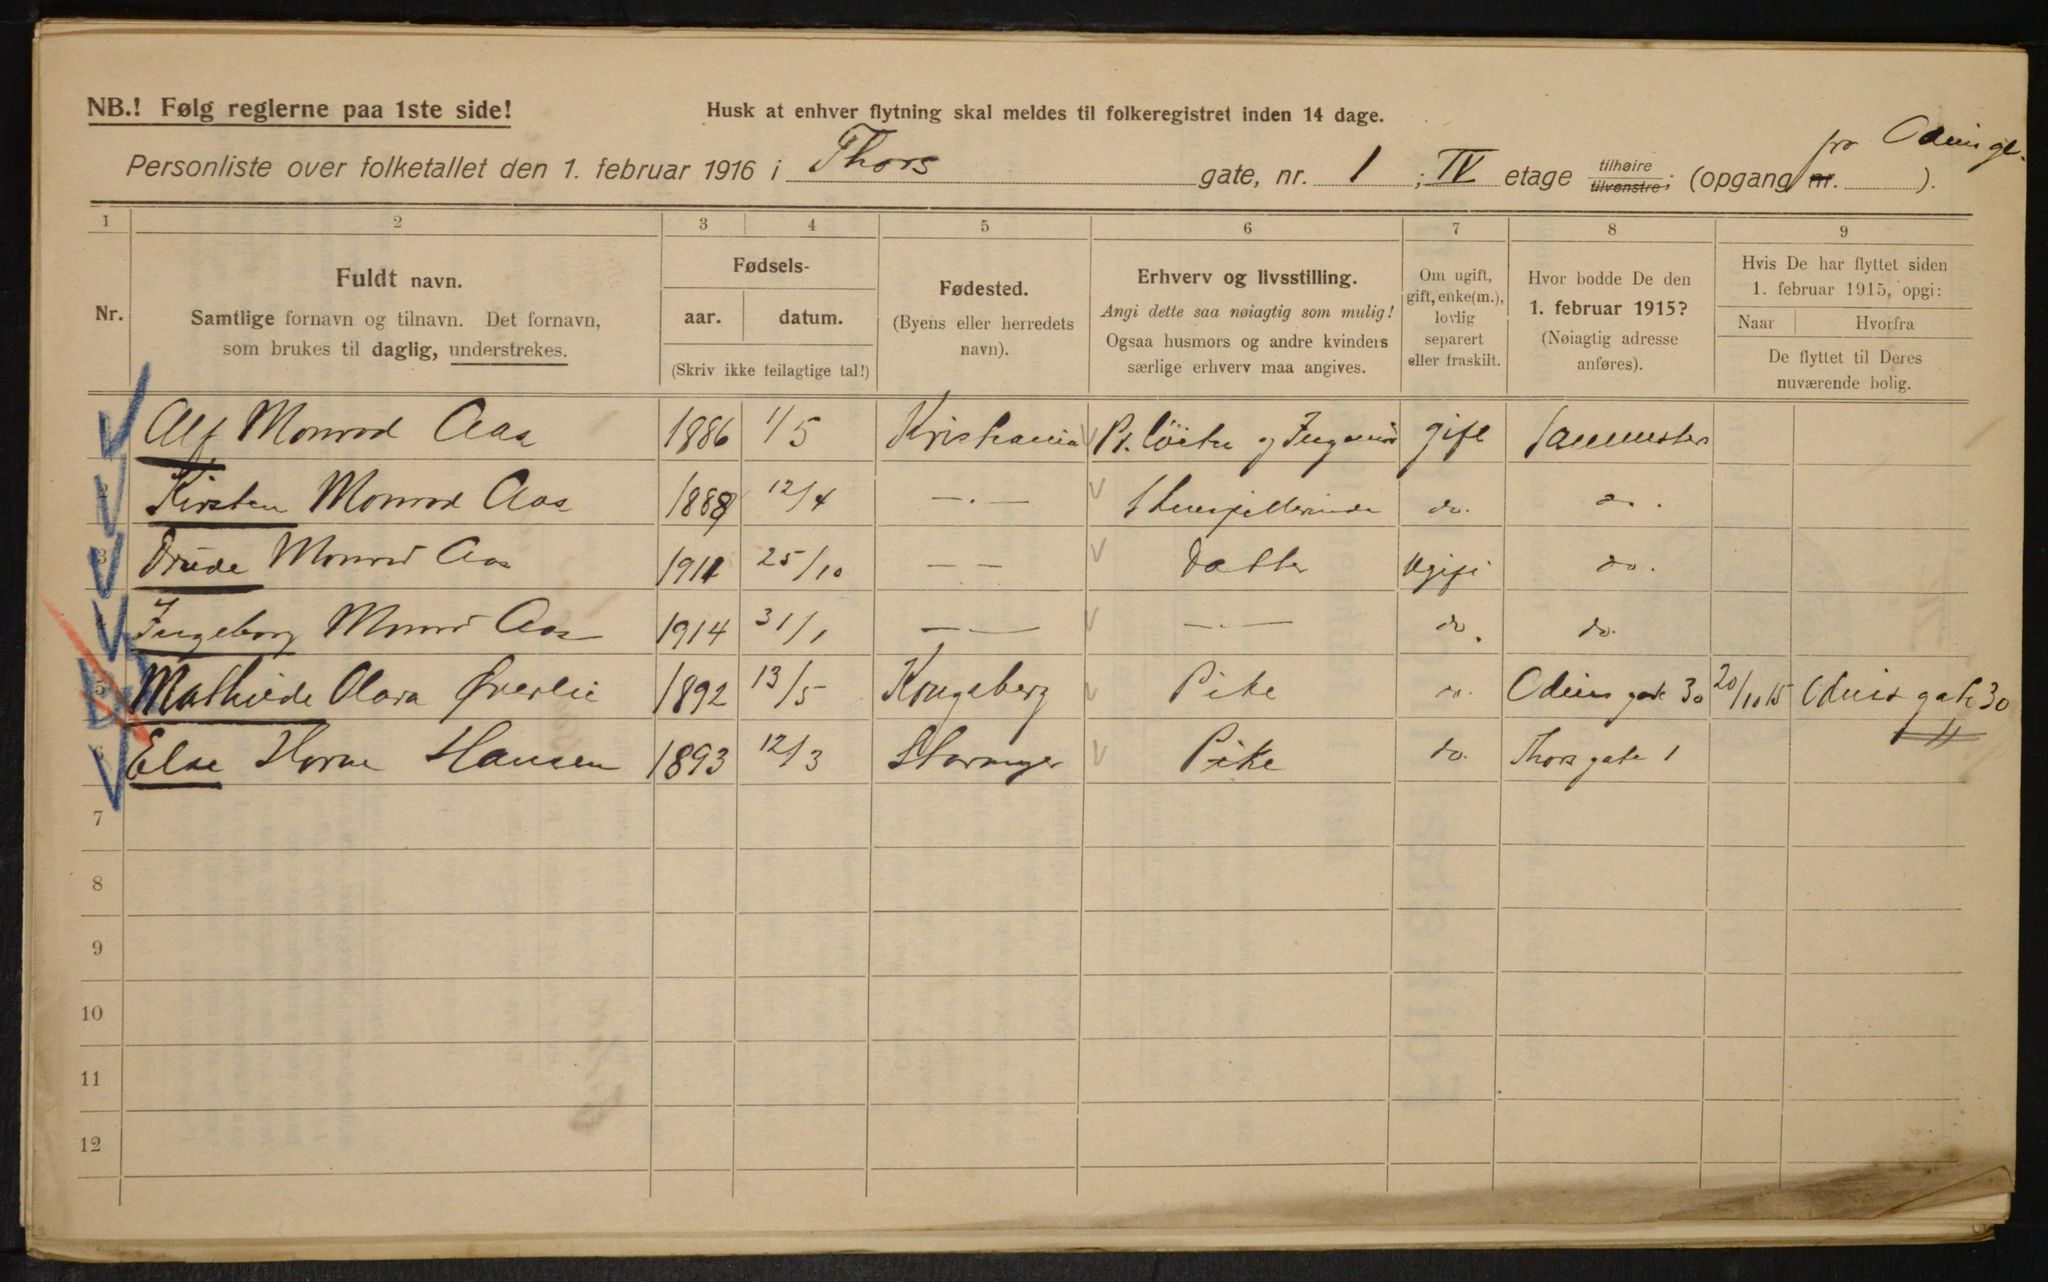 NB.! Følg reglerne paa 1ste side!
Husk at enhver flytning skal meldes til folkeregistret inden 14 dage.
Personliste over folketallet den 1. februar 1916 i Thors gate, nr. 1 ; IV etage tilhøire tilvenstre; (opgang nr. ). fra Odinsgt.
1 2 3 4 5 6 7 8 9
Nr.
Fuldt navn.
Samtlige fornavn og tilnavn. Det fornavn,
som brukes til daglig, understrekes.
Fødsels-
aar. datum.
(Skriv ikke feilagtige tal!)
Fødested.
(Byens eller herredets
navn).
Erhverv og livsstilling.
Angi dette saa nøiagtig som mulig!
Ogsaa husmors og andre kvinders
særlige erhverv maa angives.
Om ugift,
gift, enke(m.),
lovlig
separert
eller fraskilt.
Hvor bodde De den
1. februar 1915?
(Nøiagtig adresse
anføres).
Hvis De har flyttet siden
1. februar 1915, opgi:
Naar Hvorfra
De flyttet til Deres
nuværende bolig.
Alf Monrad Aas 1886 1/5 Kristiania og Ingeniør gift
Kirsten Monrad Aas 1889 12/4 — . — do. do.
3 Drude Monrad Aas 1911 25/10 — — Datter Ugift do.
Ingeborg Monrad Aas 1914 31/1 — — — . — do. do.
5 Mathilde Olava Øverlie 1892 13/5 Kongsberg Pike do. Odins gate 30 20/10 15 Odins gate 30
6 Else Hansen 1893 12/3 Stavanger Pike do. Thors gate 1
7
8
9
10
11
12